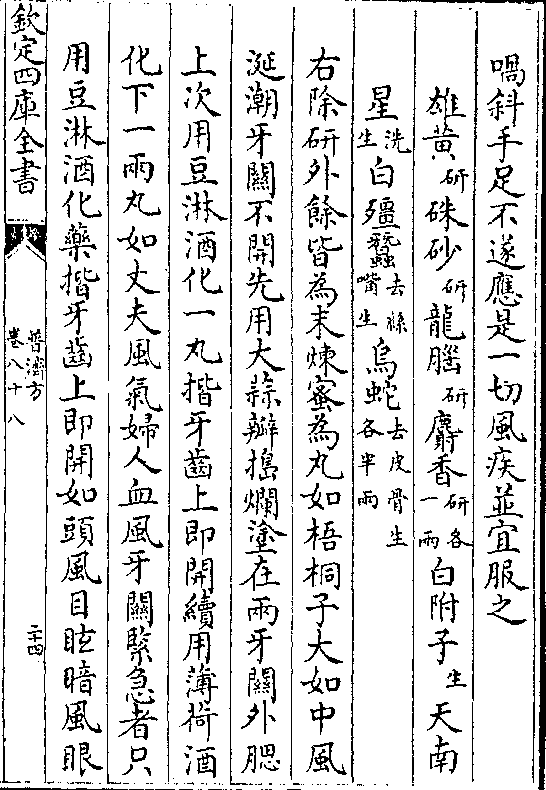 喎斜手足不遂應是一切風疾並宜服之
雄黃研硃砂研龍腦研麝香研各一兩白附子生天南
星洗生白殭蠶去絲嘴生烏蛇去皮骨生各半兩
右除研外餘皆為末煉蜜為丸如梧桐子大如中風
涎潮牙關不開先用大蒜瓣搗爛塗在兩牙關外腮
上次用豆淋酒化一丸揩牙齒上即開續用薄荷酒
化下一兩丸如丈夫風氣婦人血風牙關緊急者只
用豆淋酒化藥揩牙齒上即開如頭風目眩暗風眼
欽定四庫全書
普濟方
卷八十八
二十四